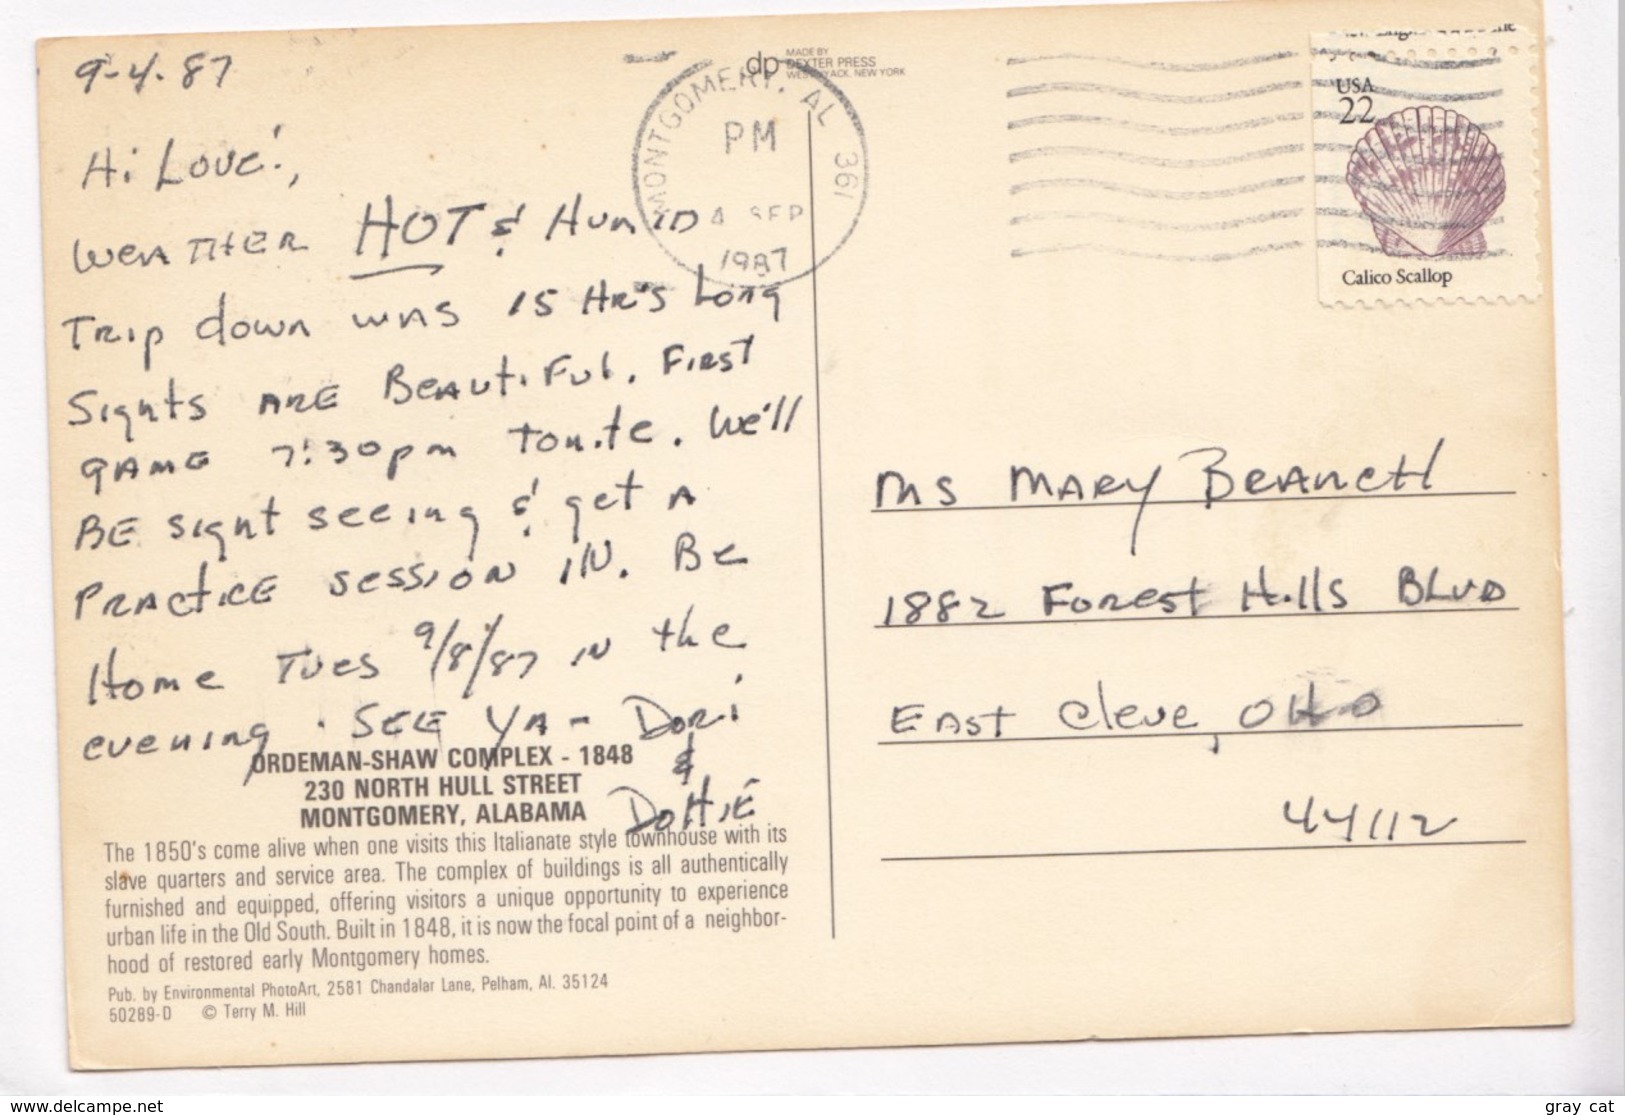 9-4-87
Hi Love!,
Weather HOT & Humid
Trip down was 15 Hr's Long
Sights are Beautiful. First
game 7:30pm tonite. We'll
BE sight seeing & get a
Practice session IN. Be
Home Tues 9/8/87 in the
evening. SEE YA - Dori
&
Dottie
ORDEMAN-SHAW COMPLEX - 1848
230 NORTH HULL STREET
MONTGOMERY, ALABAMA
The 1850's come alive when one visits this Italianate style townhouse with its
slave quarters and service area. The complex of buildings is all authentically
furnished and equipped, offering visitors a unique opportunity to experience
urban life in the Old South. Built in 1848, it is now the focal point of a neighbor-
hood of restored early Montgomery homes.
Pub. by Environmental PhotoArt, 2581 Chandalar Lane, Pelham, Al. 35124
50289-D © Terry M. Hill
dp
MADE BY
DEXTER PRESS
WEST NYACK, NEW YORK
MONTGOMERY, AL 361
PM
4 SEP
1987
USA
22
Calico Scallop
Ms Mary Branch
1882 Forest Hills BLVD
East Cleve, OHIO
44112
www.delcampe.net
gray cat